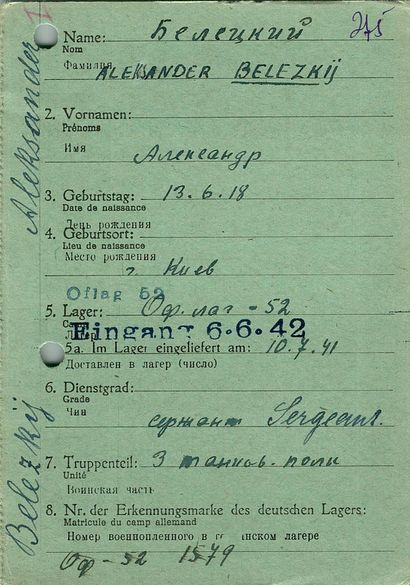 1 Name: Белецкий 275
Nom
Фамилия
ALEKSANDER BELEZKIJ
2. Vornamen:
Prénoms
Имя
Александр
3. Geburtstag: 13.6.18
Date de naissance
День рождения
4. Geburtsort:
Lieu de naissance
Место рождения
г. Киев
Oflag 52
5. Lager: Оф. лаг - 52
Eingang 6.6.42
5a. Im Lager eingeliefert am: 10.7.41
Доставлен в лагерь (число)
6. Dienstgrad:
Grade
Чин
сержант Sergeant.
7. Truppenteil: 3 танков. полк
Unité
Воинская часть
8. Nr. der Erkennungsmarke des deutschen Lagers:
Matricule du camp allemand
Номер военнопленного в германском лагере
Оф - 52 1579
Belezkij Aleksander